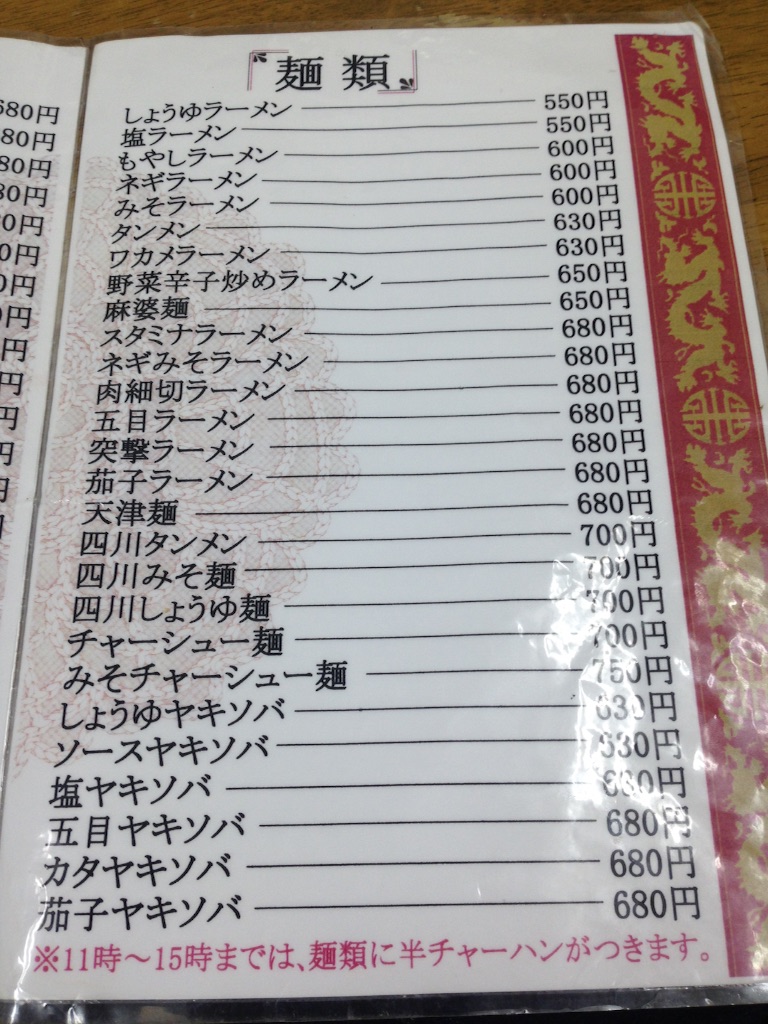 麺類
しょうゆラーメン 550円
塩ラーメン 550円
もやしラーメン 600円
ネギラーメン 600円
みそラーメン 600円
タンメン 630円
ワカメラーメン 630円
野菜辛子炒めラーメン 650円
麻婆麺 650円
スタミナラーメン 680円
ネギみそラーメン 680円
肉細切ラーメン 680円
五目ラーメン 680円
突撃ラーメン 680円
茄子ラーメン 680円
天津麺 680円
四川タンメン 700円
四川みそ麺 700円
四川しょうゆ麺 700円
チャーシュー麺 700円
みそチャーシュー麺 750円
しょうゆヤキソバ 630円
ソースヤキソバ 630円
塩ヤキソバ
五目ヤキソバ 680円
カタヤキソバ 680円
茄子ヤキソバ 680円
※11時～15時までは、麺類に半チャーハンがつきます。